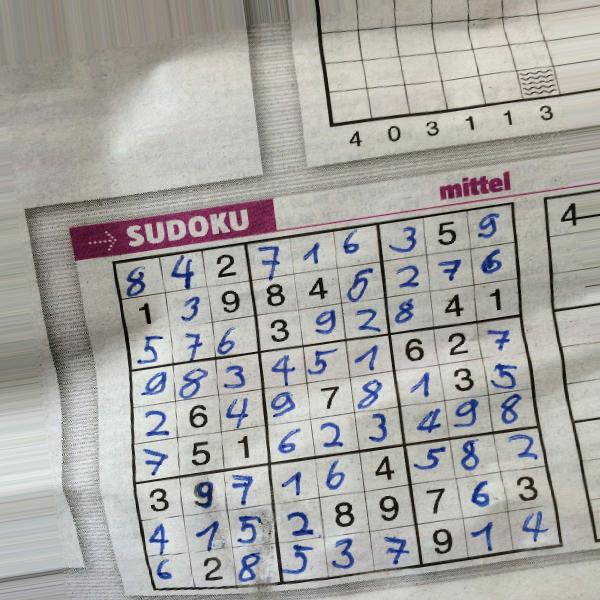 4 0 3 1 1 3
mittel
SUDOKU
8 4 2 7 1 6 3 5 9
1 3 9 8 4 5 2 7 6
5 7 6 3 9 2 8 4 1
9 8 3 4 5 1 6 2 7
2 6 4 9 7 8 1 3 5
7 5 1 6 2 3 4 9 8
3 9 7 1 6 4 5 8 2
4 1 5 2 8 9 7 6 3
6 2 8 5 3 7 9 1 4
4